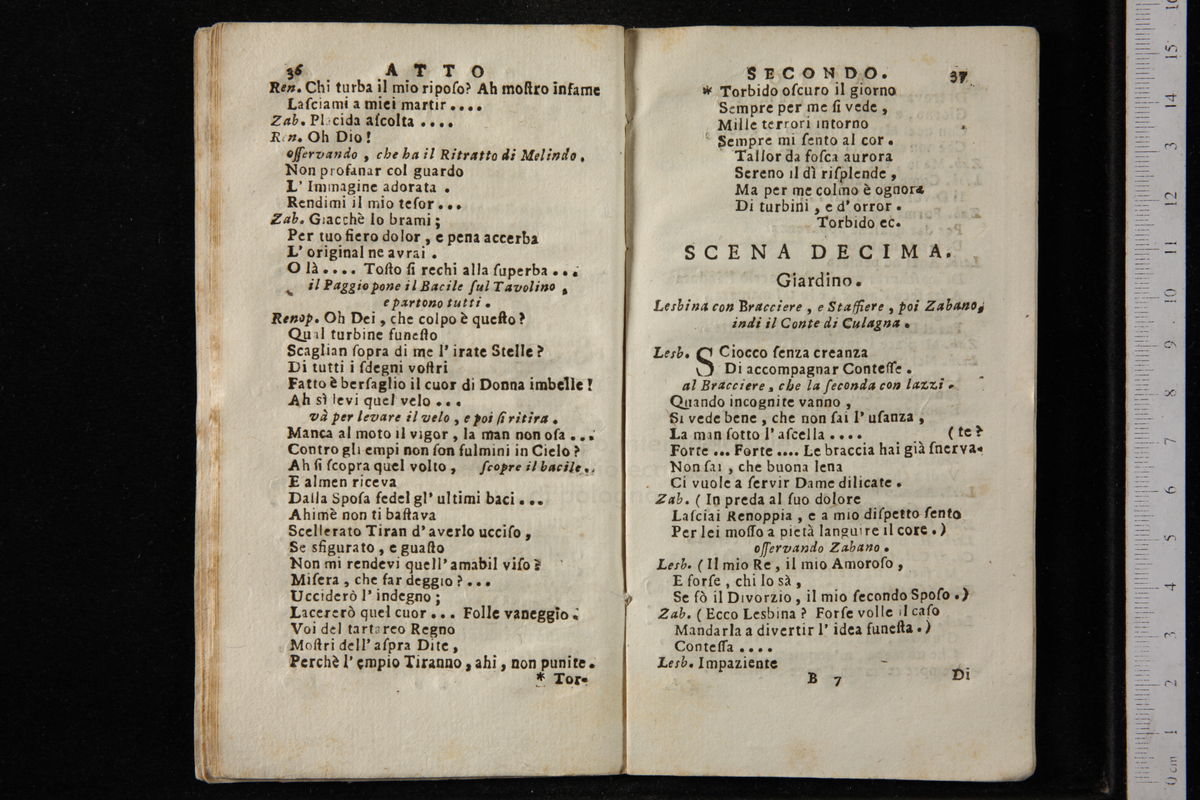 36 ATTO
Ren. Chi turba il mio ripoſo? Ah moſtro infame
Laſciami a miei martir ....
Zab. Placida aſcolta ....
Ren. Oh Dio!
oſſervando, che ha il Ritratto di Melindo.
Non profanar col guardo
L' Immagine adorata.
Rendimi il mio teſor ...
Zab. Giacchè lo brami;
Per tuo fiero dolor, e pena accerba
L' original ne avrai.
O là .... Toſto ſi rechi alla ſuperba ...
il Paggio pone il Bacile ſul Tavolino,
e partono tutti.
Renop. Oh Dei, che colpo è queſto?
Qual turbine funeſto
Scaglian ſopra di me l' irate Stelle?
Di tutti i ſdegni voſtri
Fatto è berſaglio il cuor di Donna imbelle!
Ah sì levi quel velo ...
và per levare il velo, e poi ſi ritira.
Manca al moto il vigor, la man non oſa ...
Contro gli empi non ſon fulmini in Cielo?
Ah ſi ſcopra quel volto, ſcopre il bacile.
E almen riceva
Dalla Spoſa fedel gl' ultimi baci ...
Ahimè non ti baſtava
Scellerato Tiran d' averlo ucciſo,
Se sfigurato, e guaſto
Non mi rendevi quell' amabil viſo?
Miſera, che far deggio? ...
Ucciderò l' indegno;
Lacererò quel cuor ... Folle vaneggio:
Voi del tartareo Regno
Moſtri dell' aſpra Dite,
Perchè l' empio Tiranno, ahi, non punite.
* Tor-
SECONDO. 37
* Torbido oſcuro il giorno
Sempre per me ſi vede,
Mille terrori intorno
Sempre mi ſento al cor.
Tallor da foſca aurora
Sereno il dì riſplende,
Ma per me colmo è ognora
Di turbini, e d' orror.
Torbido ec.
SCENA DECIMA.
Giardino.
Lesbina con Bracciere, e Staffiere, poi Zabano,
indi il Conte di Culagna.
Lesb. SCiocco ſenza creanza
Di accompagnar Conteſſe.
al Bracciere, che la ſeconda con lazzi.
Quando incognite vanno,
Si vede bene, che non ſai l' uſanza,
La man ſotto l' aſcella .... (te?
Forte ... Forte .... Le braccia hai già ſnerva-
Non ſai, che buona lena
Ci vuole a ſervir Dame dilicate.
Zab. (In preda al ſuo dolore
Laſciai Renoppia, e a mio diſpetto ſento
Per lei moſſo a pietà languire il core.)
oſſervando Zabano.
Lesb. (Il mio Re, il mio Amoroſo,
E forſe, chi lo sà,
Se fò il Divorzio, il mio ſecondo Spoſo.)
Zab. (Ecco Lesbina? Forſe volle il caſo
Mandarla a divertir l' idea funeſta.)
Conteſſa ....
Lesb. Impaziente
B 7 Di